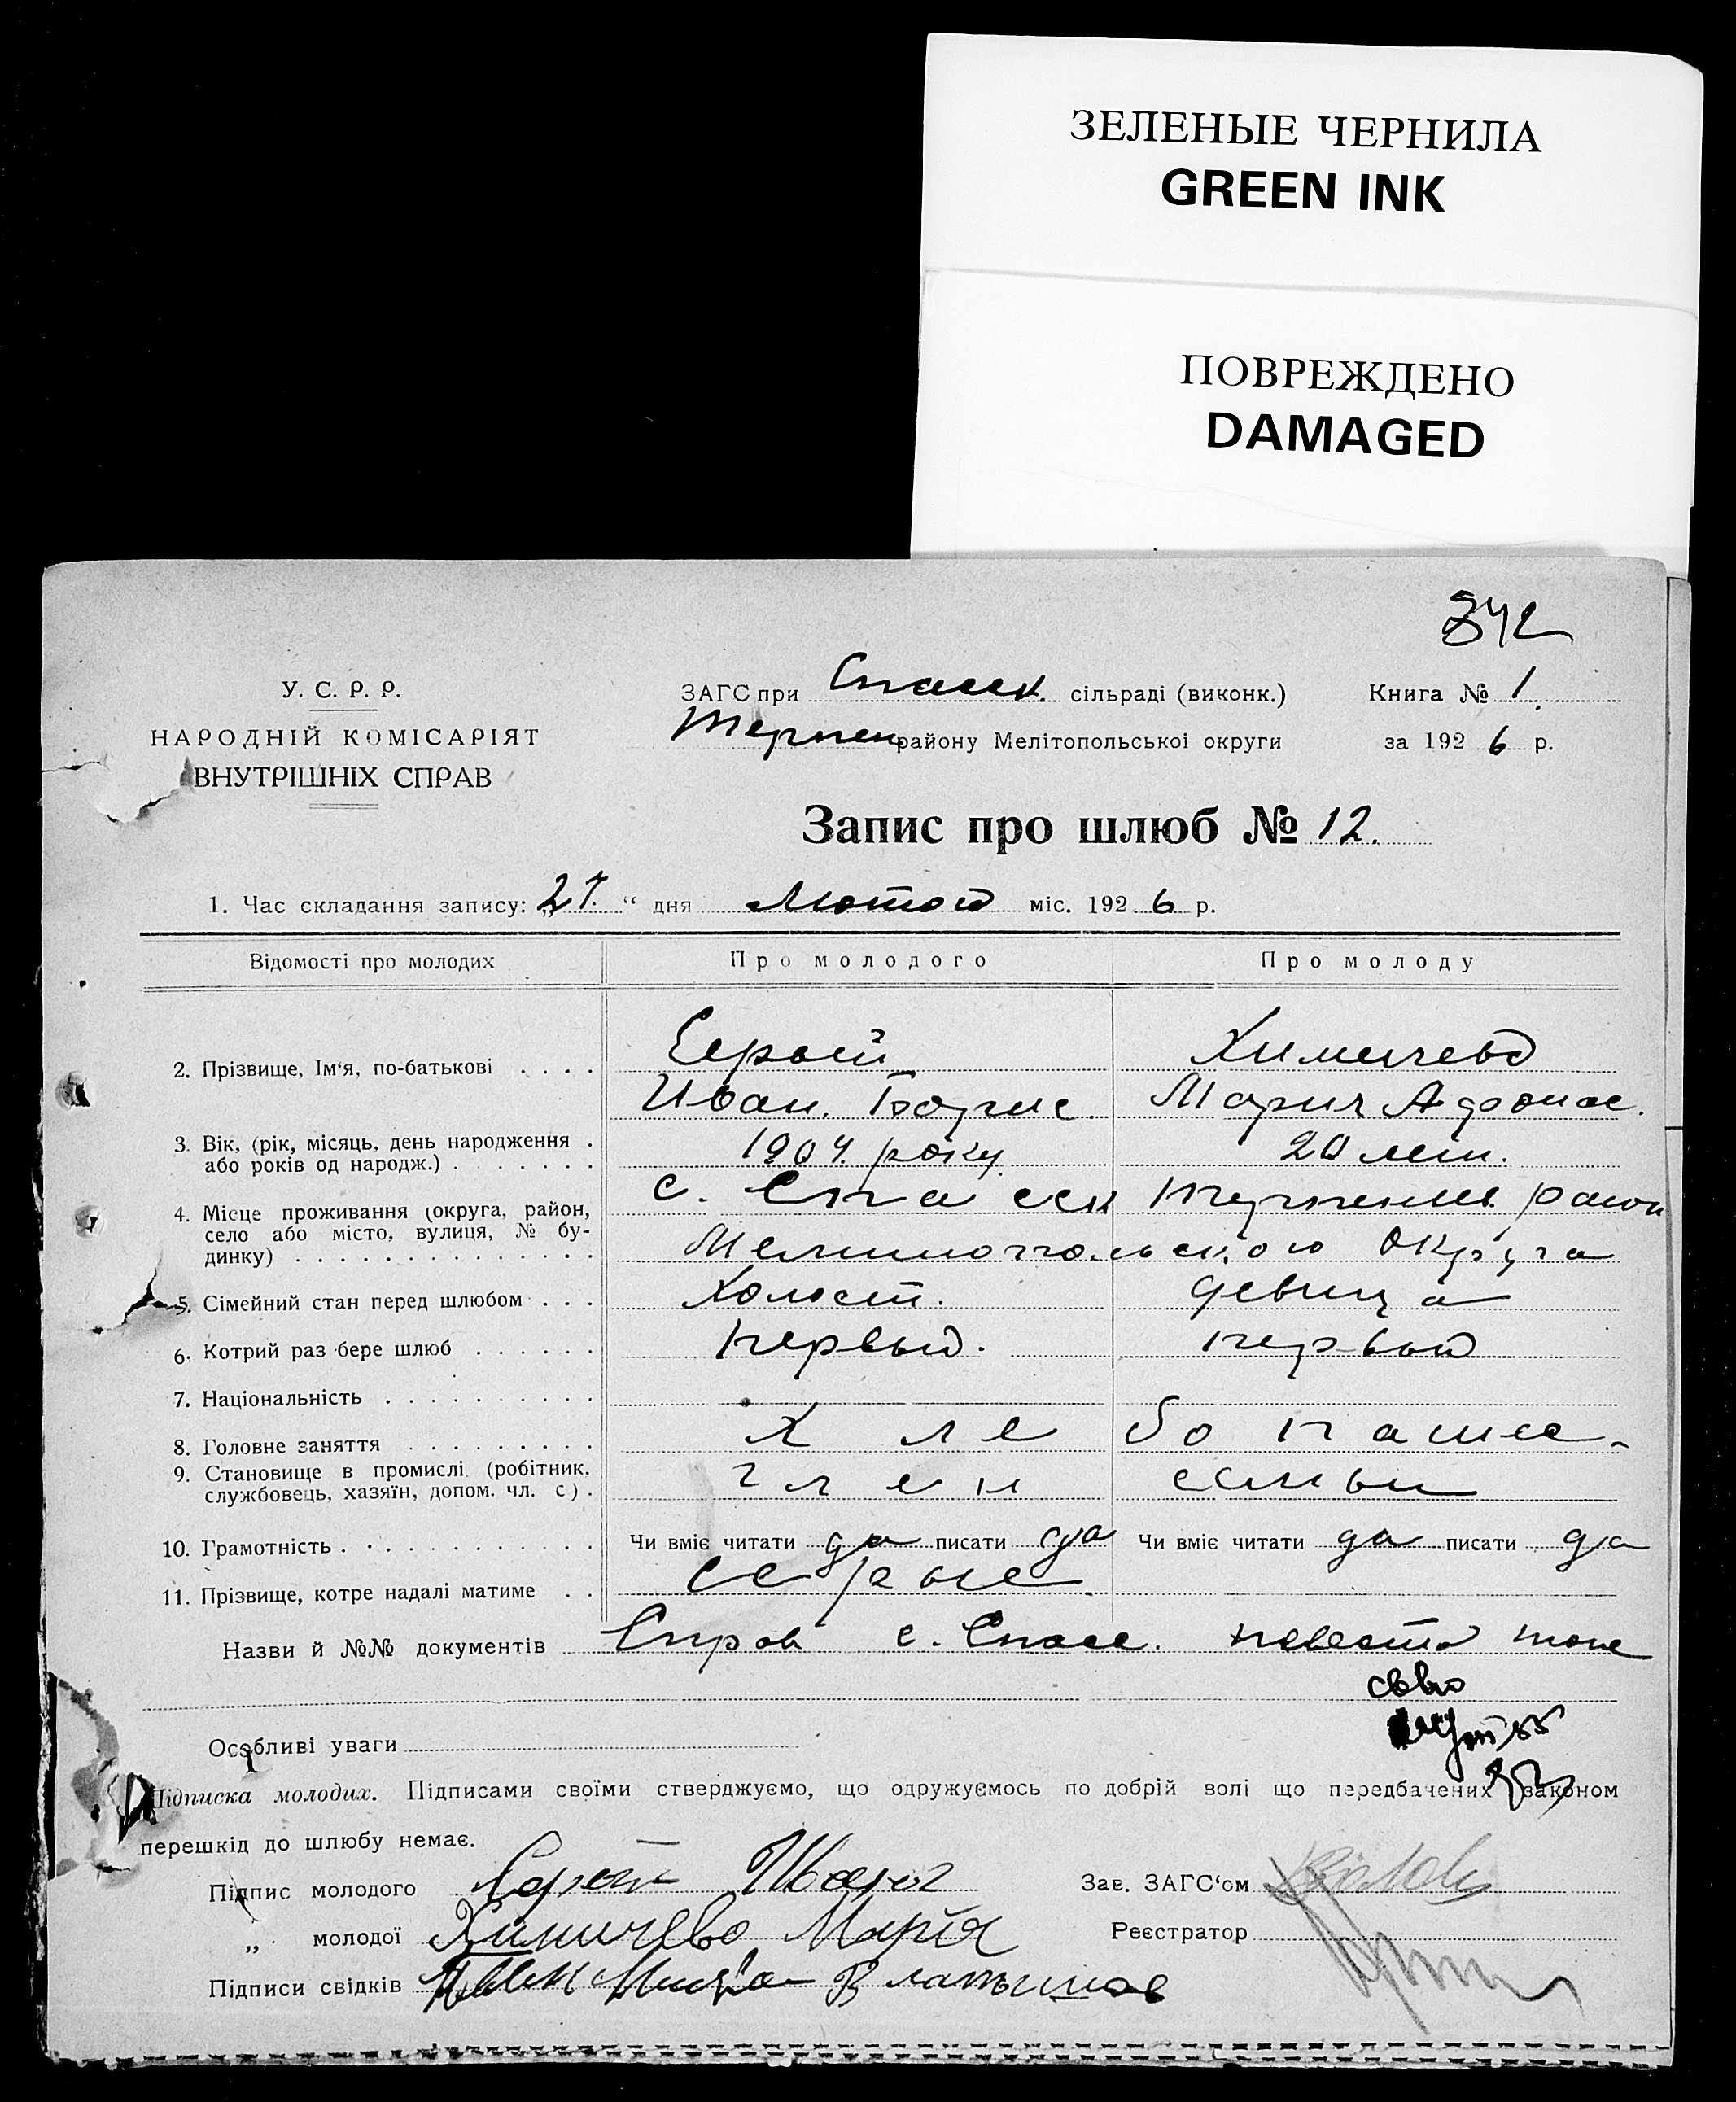 ЗЕЛЕНЫЕ ЧЕРНИЛА
GREEN INK
ПОВРЕЖДЕНО
DAMAGED
342
У. С. Р. Р.
НАРОДНІЙ КОМІСАРІЯТ
ВНУТРІШНІХ СПРАВ
ЗАГС при Спасск. сільраді (виконк.) Книга № 1.
Терпен району Мелітопольської округи за 1926 р.
Запис про шлюб № 12.
1. Час складання запису: „27.“ дня Лютого міс. 1926 р.
Відомості про молодих Про молодого Про молоду
2. Прізвище, Ім‘я, по-батькові Серый Химичева
Иван. Борис. Мария Афонас.
3. Вік, (рік, місяць, день народження або років од народж.) 1904. року 20 лет.
4. Місце проживання (округа, район, село або місто, вулиця, № будинку) с. Спасск Терпеньев. район
Мелитопольского Округа
5. Сімейний стан перед шлюбом Холост. девица
6. Котрий раз бере шлюб первый. первый
7. Національність
8. Головне заняття Хлебопашес-
9. Становище в промислі (робітник, службовець, хазяїн, допом. чл. с.) член семьи
10. Грамотність Чи вміє читати да писати да Чи вміє читати да писати да
11. Прізвище, котре надалі матиме Серые.
Назви й №№ документів Справ с. Спасс. невеста тоже
Особливі уваги
Підписка молодих. Підписами своїми стверджуємо, що одружуємось по добрій волі що передбачених законом
перешкід до шлюбу немає.
Підпис молодого Серый Иван Зав. ЗАГС‘ом
„ молодої Химичева Марія Реєстратор
Підписи свідків